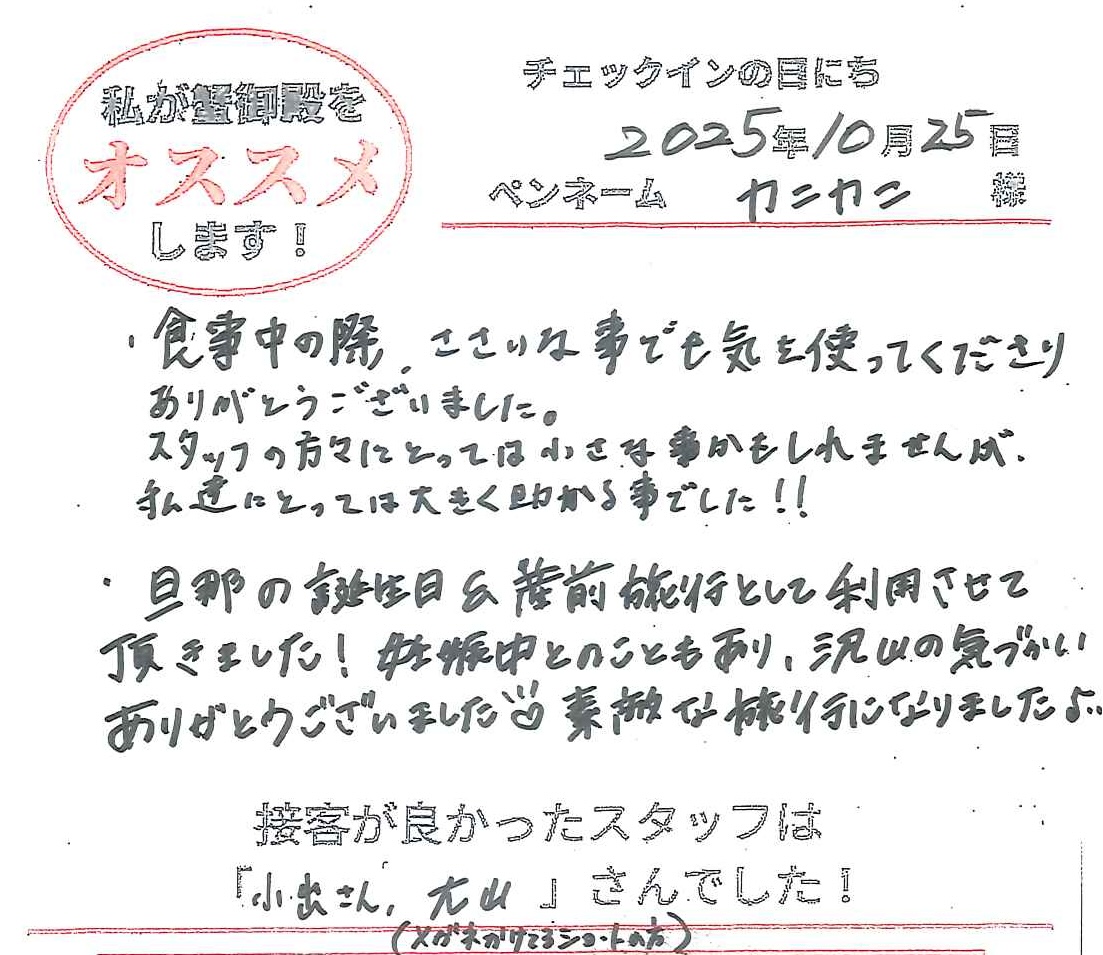 私が蟹御殿を
オススメ
します！
チェックインの日にち
2025年10月25日
ペンネーム カニカニ 様
・食事中の際、ささいな事でも気を使ってくださり
ありがとうございました。
スタッフの方々にとっては小さな事かもしれませんが、
私達にとっては大きく助かる事でした!!
・旦那の誕生日&産前旅行として利用させて
頂きました! 妊娠中とのこともあり、沢山の気づかい
ありがとうございました 素敵な旅行になりました♪
接客が良かったスタッフは
「小出さん、大山」さんでした！
(メガネかけてるショートの方)